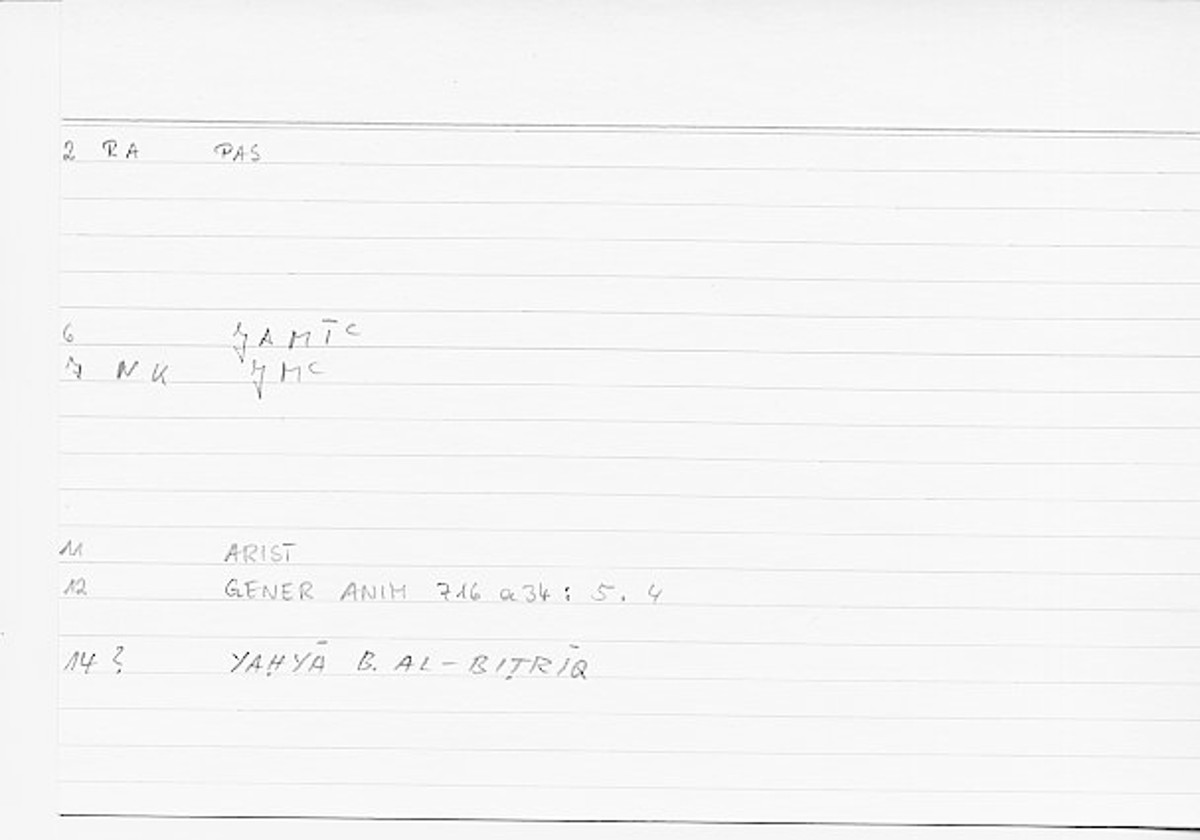 2 RA PAS
6 ǦAMĪʿ
7 NK ǦMʿ
11 ARIST
12 GENER ANIM 716 a34 : 5. 4
14 ? YAḤYĀ B. AL-BIṬRĪQ